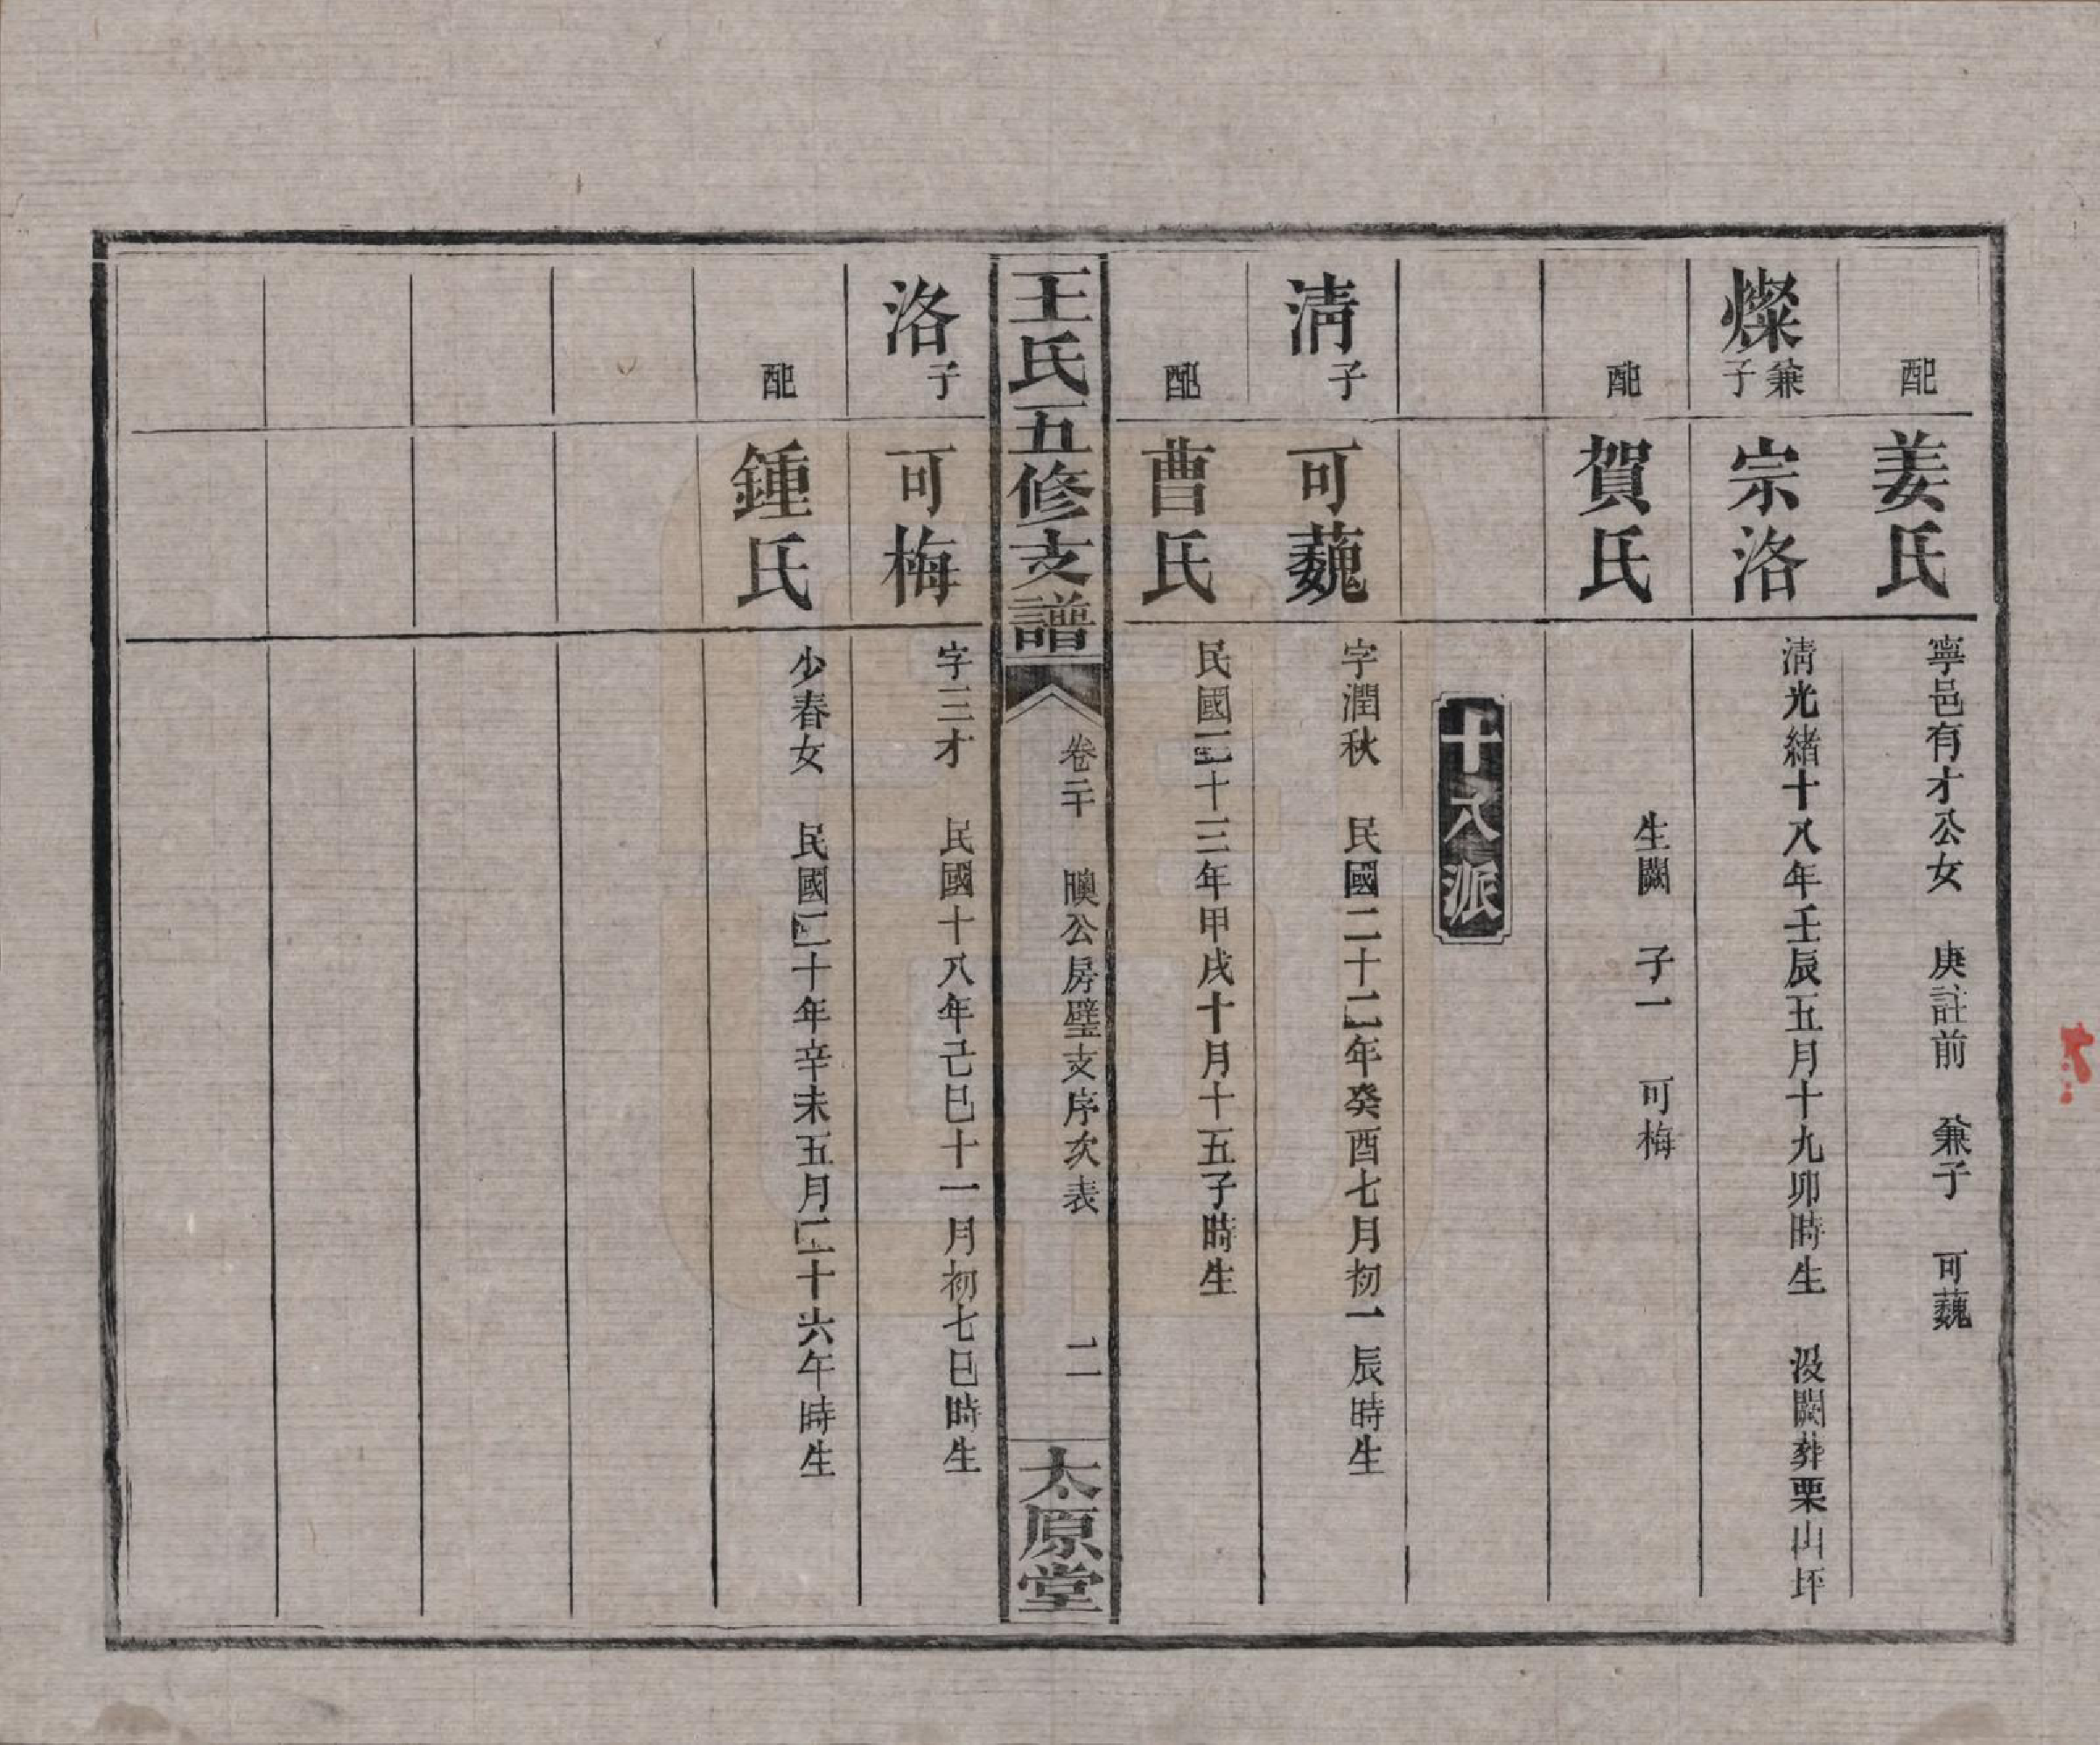 配 姜氏 寧邑有才公女 庚註前 兼子 可巍
燦兼子 宗洛 清光緒十八年壬辰五月十九卯時生 沒闕葬栗山坪
配 賀氏 生闕 子一 可梅
十八派
清子 可巍 字潤秋 民國二十二年癸酉七月初一辰時生
配 曹氏 民國二十三年甲戌十月十五子時生
王氏五修支譜 卷二十 公房璧支序次表 二 太原堂
洛子 可梅 字三才 民國十八年己巳十一月初七巳時生
配 鍾氏 少春女 民國二十年辛未五月二十六午時生